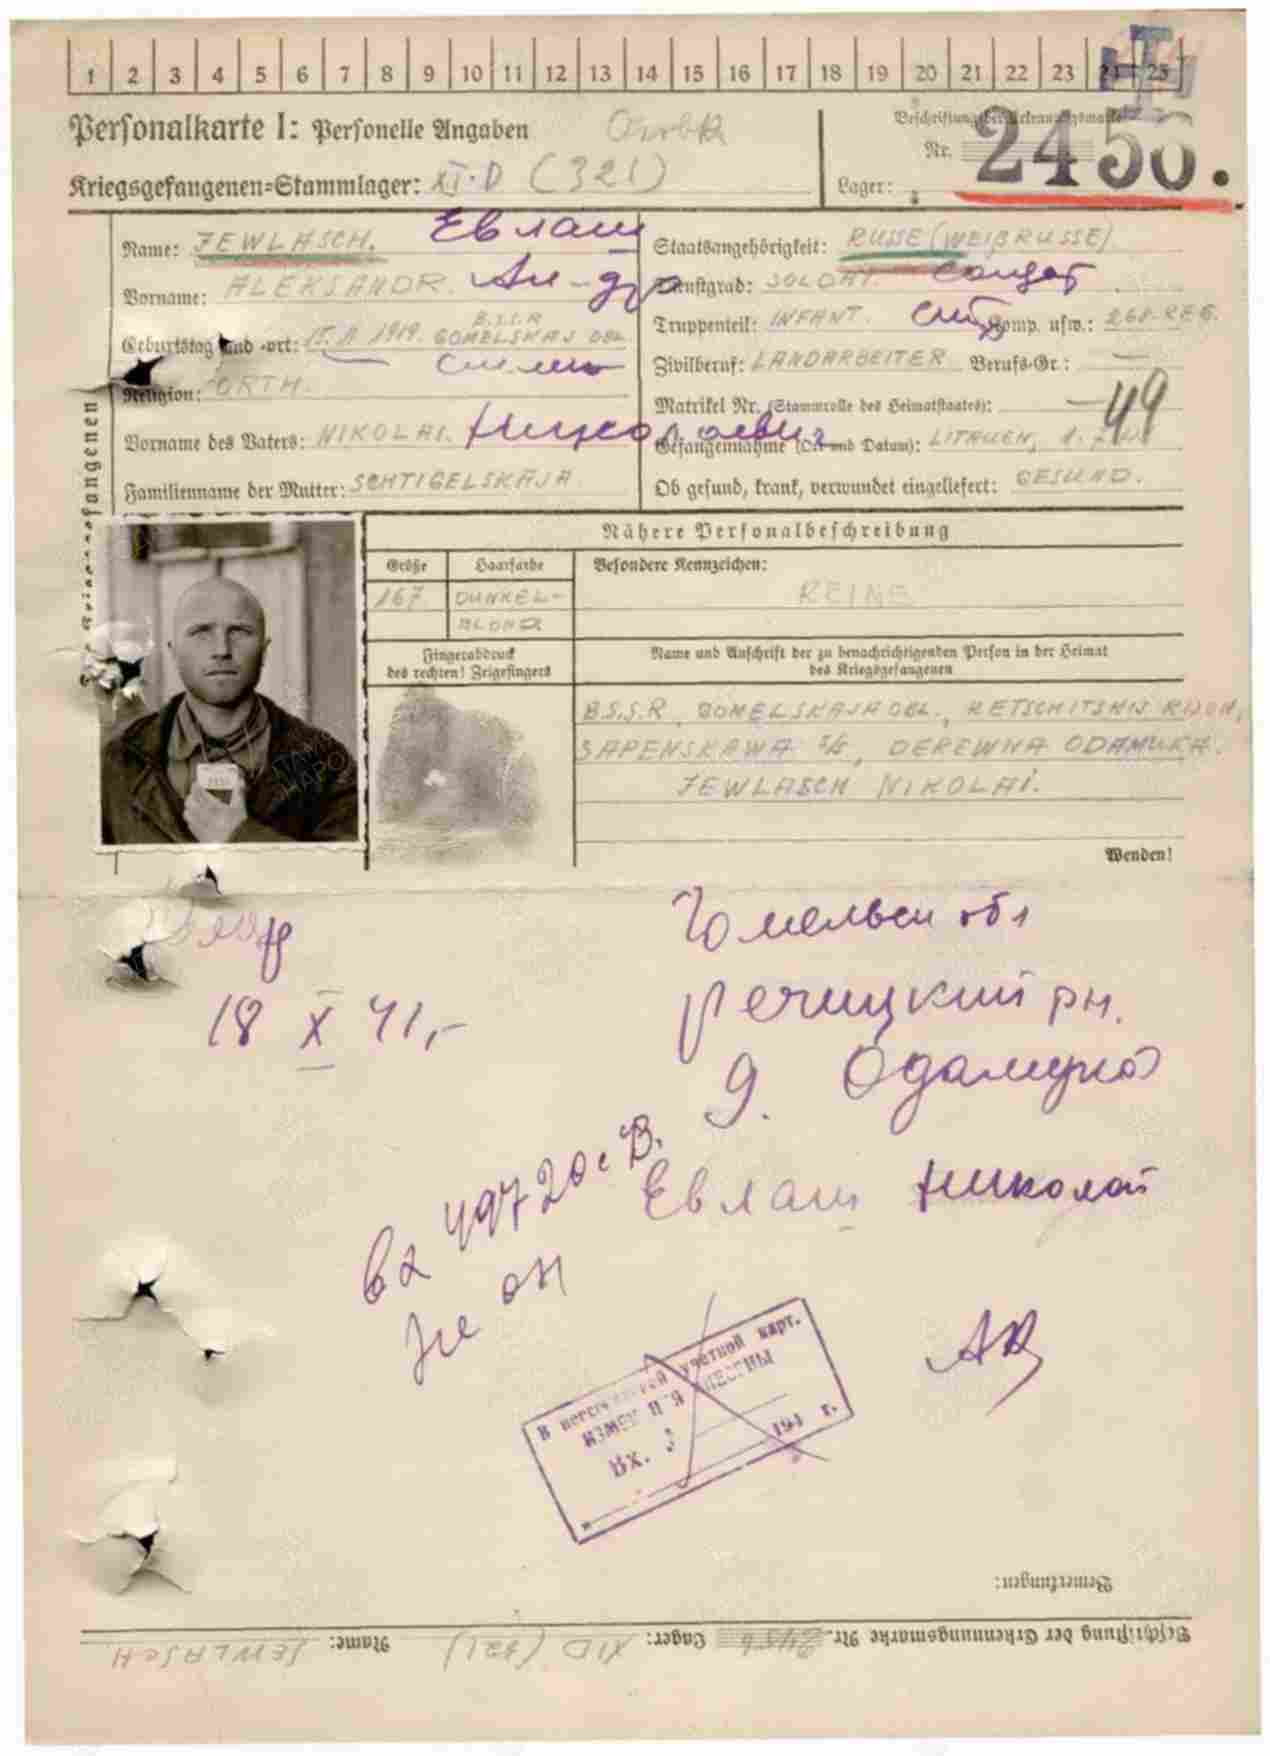 1 2 3 4 5 6 7 8 9 10 11 12 13 14 15 16 17 18 19 20 21 22 23 24 25
Personalkarte I: Personelle Angaben
Beschriftung der Erkennungsmarke
Nr. 2456.
Kriegsgefangenen-Stammlager: XI·D (321)
Lager:
Name: JEWLASCH. Евлаш
Staatsangehörigkeit: RUSSE (WEIßRUSSE)
Vorname: ALEKSANDR. Ал-др
Dienstgrad: SOLDAT. солдат
Truppenteil: INFANT. Komp. usw.: 268. REG.
B.S.S.R
Geburtstag und -ort: 1919. GOMELSKAJ OBL
Zivilberuf: LANDARBEITER Berufs-Gr.: —
Religion: ORTH.
Matrikel Nr. (Stammrolle des Heimatstaates): —
49
Vorname des Vaters: NIKOLAI. Николаевич
Gefangennahme (Ort und Datum): LITAUEN, 1.
Familienname der Mutter: SCHTIGELSKAJA.
Ob gesund, krank, verwundet eingeliefert: GESUND.
Nähere Personalbeschreibung
Größe Haarfarbe Besondere Kennzeichen:
167 DUNKEL-
BLOND
KEINE
Fingerabdruck
des rechten! Zeigefingers
Name und Anschrift der zu benachrichtigenden Person in der Heimat
des Kriegsgefangenen
B.S.S.R, GOMELSKAJA OBL., RETSCHITSKIJ RAJON,
SAPENSKAWA S/S, DEREWNA ODAMUKA.
JEWLASCH NIKOLAI.
Wenden!
Гомельск обл
18 X 41,-
Речицкий рн.
д. Одамука
Евлаш Николай
вх 49720с В.
не он
В персональной учетной карт.
изменения внесены
Вх. 194 г.
Bemerkungen:
Beschriftung der Erkennungsmarke Nr. 2456 Lager: XID (321) Name: JEWLASCH